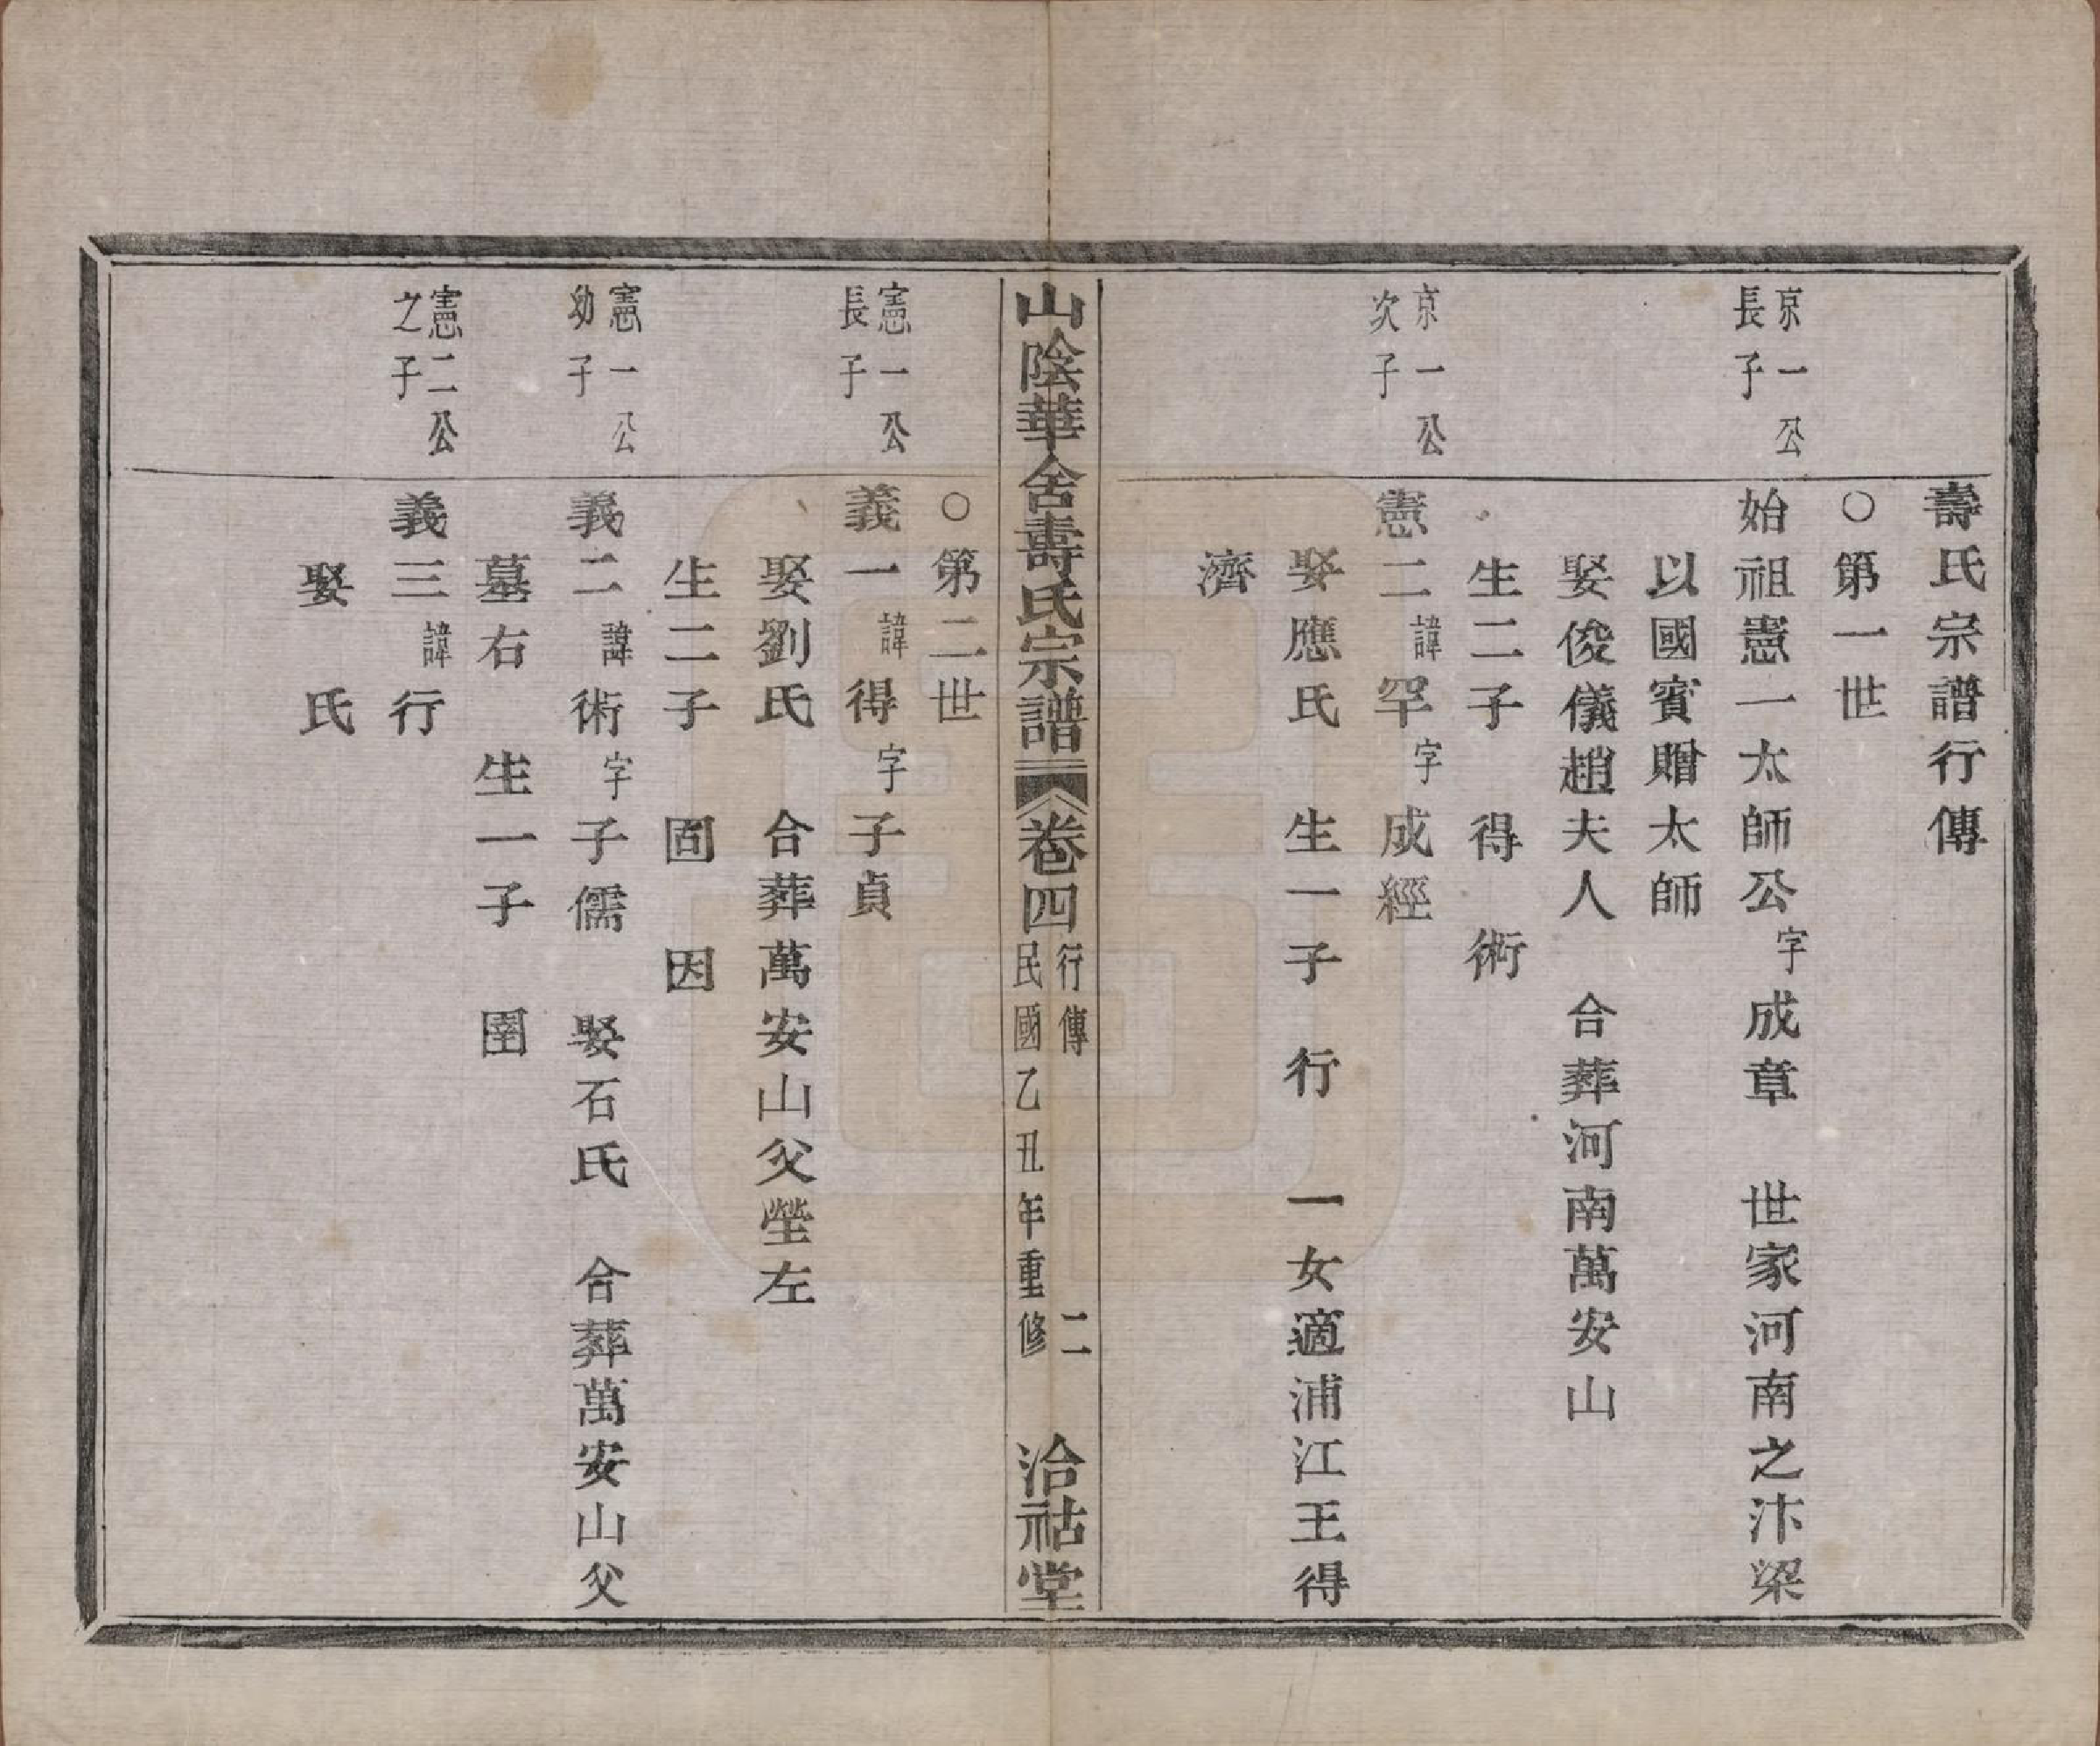 壽氏宗譜行傳
○第一世
京一公
長子
始祖憲一太師公字成章　世家河南之汴梁
以國賓贈太師
娶俊儀趙夫人　合葬河南萬安山
生二子　得　術
京一公
次子
憲二諱罕字成經
娶應氏　生一子　行　一女適浦江王得
濟
山陰華舍壽氏宗譜　卷四　行傳　民國乙丑年重修　二　洽祜堂
○第二世
憲一公
長子
義一諱得字子貞
娶劉氏　合葬萬安山父塋左
生二子　固　因
憲一公
幼子
義二諱術字子儒　娶石氏　合葬萬安山父
墓右　生一子　圉
憲二公
之子
義三諱行
娶　氏